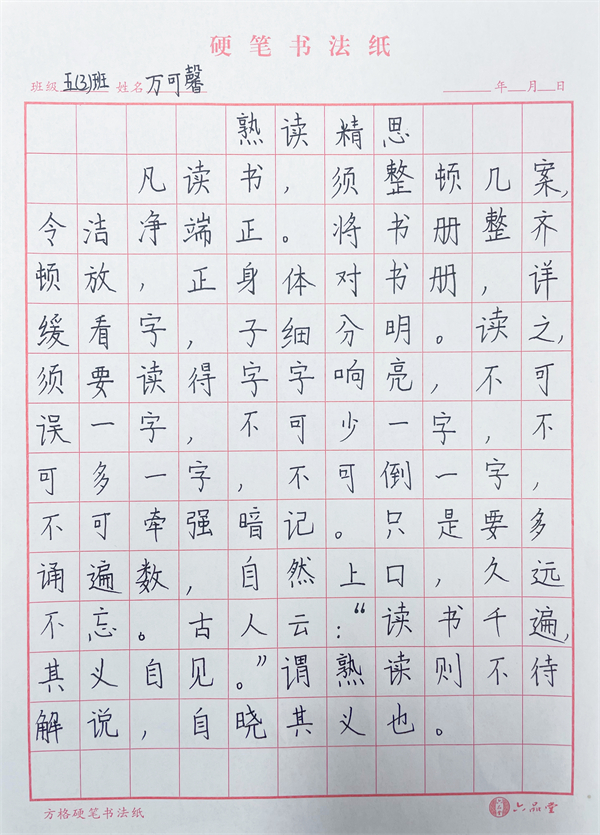 硬笔书法纸
班级 五(3)班 姓名 万可馨 年 月 日
熟读精思
凡读书，须整顿几案，
令洁净端正。将书册整齐
顿放，正身体对书册，详
缓看字，子细分明。读之，
须要读得字字响亮，不可
误一字，不可少一字，不
可多一字，不可倒一字，
不可牵强暗记。只是要多
诵遍数，自然上口，久远
不忘。古人云：“读书千遍，
其义自见。”谓熟读则不待
解说，自晓其义也。
方格硬笔书法纸 六品堂